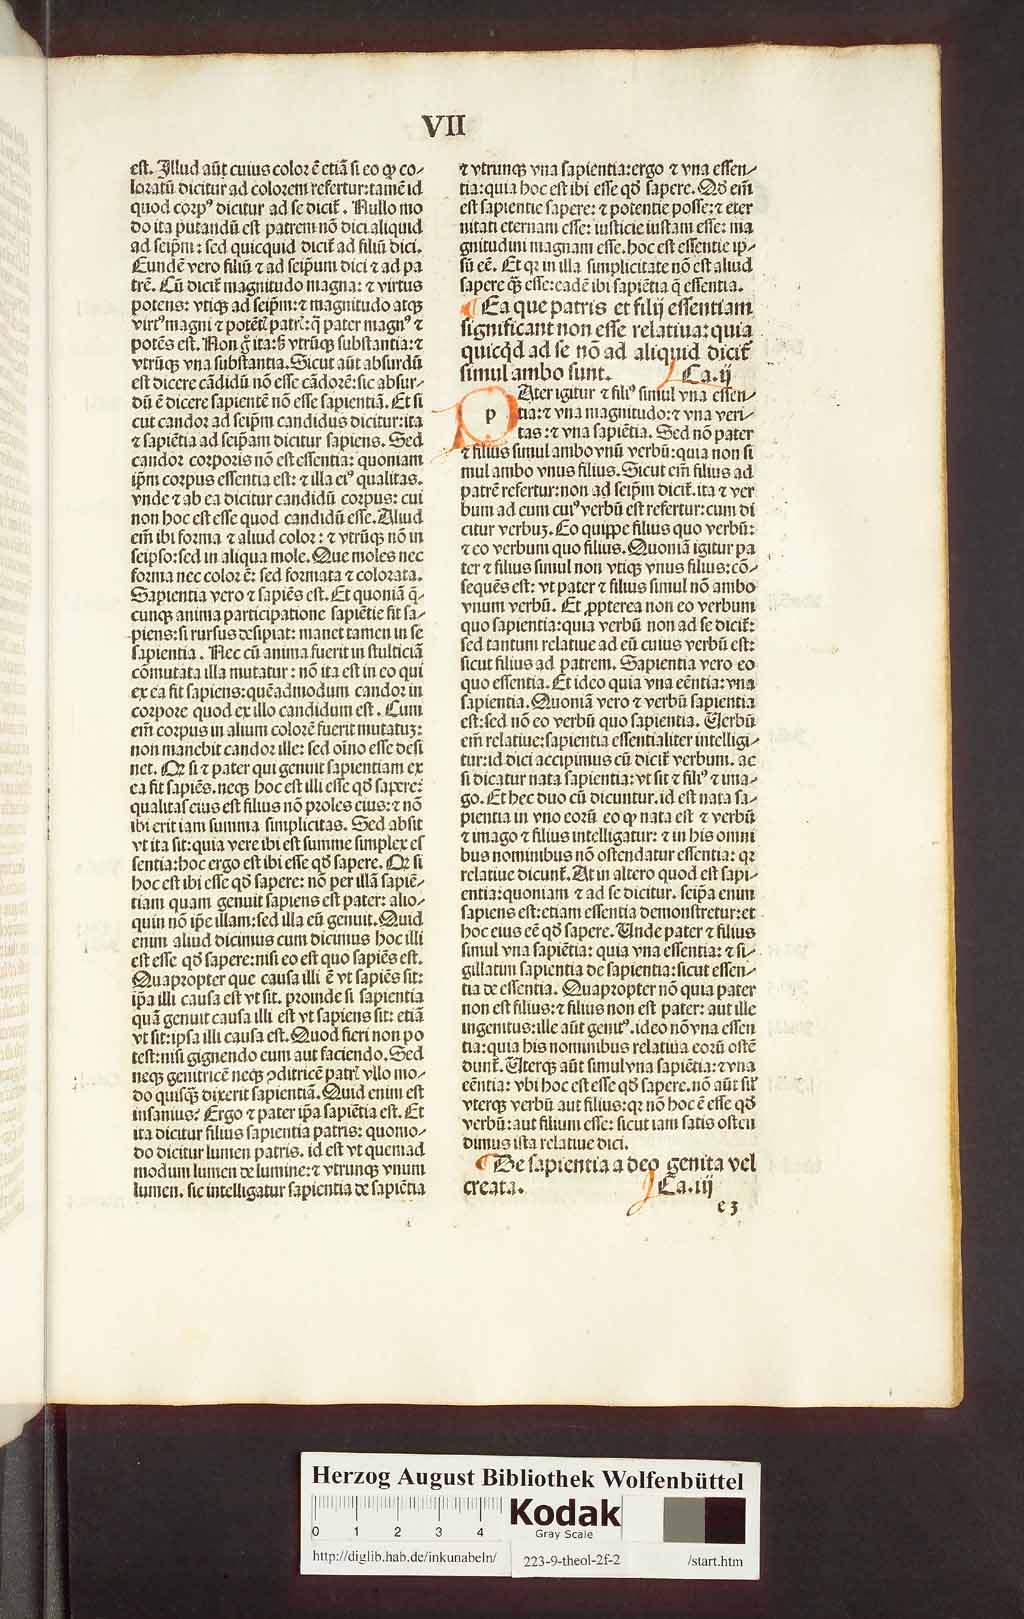 VII
est. Illud aūt cuius color ē etiā si eo ꝙ co-
loratū dicitur ad colorem refertur: tamē id
quod corpꝰ dicitur ad se dicit̄. Nullo mo
do ita putandū est patrem nō dici aliquid
ad seip̄m: sed quicquid dicit̄ ad filiū dici.
Eundē vero filiū ⁊ ad seip̄um dici ⁊ ad pa
trē. Cū dicit̄ magnitudo magna: ⁊ virtus
potens: vtiqꝫ ad seip̄m: ⁊ magnitudo atqꝫ
virtꝰ magni ⁊ potēt̄ patr̄: q̄ pater magnꝰ ⁊
potēs est. Non g̊ ita: sꝫ vtrūqꝫ substantia: ⁊
vtrūqꝫ vna substantia. Sicut aūt absurdū
est dicere cādidū nō esse cādorē: sic absur-
dū ē dicere sapientē nō esse sapientiā. Et si
cut candor ad seip̄m candidus dicitur: ita
⁊ sapiētia ad seip̄am dicitur sapiens. Sed
candor corporis nō est essentia: quoniam
ip̄m corpus essentia est: ⁊ illa eiꝰ qualitas.
vnde ⁊ ab ea dicitur candidū corpus: cui
non hoc est esse quod candidū esse. Aliud
em̄ ibi forma ⁊ aliud color: ⁊ vtrūqꝫ nō in
seipso: sed in aliqua mole. Que moles nec
forma nec color ē: sed formata ⁊ colorata.
Sapientia vero ⁊ sapiēs est. Et quoniā q̄-
cunqꝫ anima participatione sapiētie fit sa-
piens: si rursus desipiat: manet tamen in se
sapientia. Nec cū anima fuerit in stulticiā
cōmutata illa mutatur: nō ita est in eo qui
ex ea fit sapiens: quēadmodum candor in
corpore quod ex illo candidum est. Cum
em̄ corpus in alium colorē fuerit mutatuꝫ:
non manebit candor ille: sed oīno esse desi
net. Qꝛ si ⁊ pater qui genuit sapientiam ex
ea fit sapiēs. neqꝫ hoc est illi esse qd̄ sapere:
qualitas eius est filius nō proles eius: ⁊ nō
ibi erit iam summa simplicitas. Sed absit
vt ita sit: quia vere ibi est summe simplex es
sentia: hoc ergo est ibi esse qd̄ sapere. Qꝛ si
hoc est ibi esse qd̄ sapere: nō per illā sapiē-
tiam quam genuit sapiens est pater: alio-
quin nō ip̄e illam: sed illa eū genuit. Quid
enim aliud dicimus cum dicimus hoc illi
est esse qd̄ sapere: nisi eo est quo sapiēs est.
Quapropter que causa illi ē vt sapiēs sit:
ip̄a illi causa est vt sit. proinde si sapientia
quā genuit causa illi est vt sapiens sit: etiā
vt sit: ipsa illi causa est. Quod fieri non po
test: nisi gignendo eum aut faciendo. Sed
neqꝫ genitricē neqꝫ ↄditricē patr̄ vllo mo-
do quisqꝫ dixerit sapientiā. Quid enim est
insanius? Ergo ⁊ pater ip̄a sapiētia est. Et
ita dicitur filius sapientia patris: quomo-
do dicitur lumen patris. id est vt quemad
modum lumen de lumine: ⁊ vtrunqꝫ vnum
lumen. sic intelligatur sapientia de sapiētia
⁊ vtrunqꝫ vna sapientia: ergo ⁊ vna essen-
tia: quia hoc est ibi esse qd̄ sapere. Qd̄ em̄
est sapientie sapere: ⁊ potentie posse: ⁊ eter
nitati eternam esse: iusticie iustam esse: ma
gnitudini magnam esse. hoc est essentie ip-
sū eē. Et qꝛ in illa simplicitate nō est aliud
sapere q̄ꝫ esse: eadē ibi sapiētia q̄ essentia.
¶ Ea que patris et filij essentiam
significant non esse relatiua: quia
quicqd ad se nō ad aliquid dicit̄
simul ambo sunt. Ca. ij
PAter igitur ⁊ filiꝰ simul vna essen-
tia: ⁊ vna magnitudo: ⁊ vna veri-
tas: ⁊ vna sapiētia. Sed nō pater
⁊ filius simul ambo vnū verbū: quia non si
mul ambo vnus filius. Sicut em̄ filius ad
patrē refertur: non ad seip̄m dicit̄. ita ⁊ ver
bum ad eum cuiꝰ verbū est refertur: cum di
citur verbuꝫ. Eo quippe filius quo verbū:
⁊ eo verbum quo filius. Quoniā igitur pa
ter ⁊ filius simul non vtiqꝫ vnus filius: cō-
sequēs est: vt pater ⁊ filius simul nō ambo
vnum verbū. Et ꝓpterea non eo verbum
quo sapientia: quia verbū non ad se dicit̄:
sed tantum relatiue ad eū cuius verbū est:
sicut filius ad patrem. Sapientia vero eo
quo essentia. Et ideo quia vna eēntia: vna
sapientia. Quoniā vero ⁊ verbū sapientia
est: sed nō eo verbū quo sapientia. Verbū
em̄ relatiue: sapientia essentialiter intelligi-
tur: id dici accipimus cū dicit̄ verbum. ac
si dicatur nata sapientia: vt sit ⁊ filiꝰ ⁊ ima-
go. Et hec duo cū dicuntur. id est nata sa-
pientia in vno eorū eo ꝙ nata est ⁊ verbū
⁊ imago ⁊ filius intelligatur: ⁊ in his omni
bus nominibus nō ostendatur essentia: qꝛ
relatiue dicunt̄. At in altero quod est sapi-
entia: quoniam ⁊ ad se dicitur. seip̄a enim
sapiens est: etiam essentia demonstretur: et
hoc eius eē qd̄ sapere. Unde pater ⁊ filius
simul vna sapiētia: quia vna essentia: ⁊ si-
gillatim sapientia de sapientia: sicut essen-
tia de essentia. Quapropter nō quia pater
non est filius: ⁊ filius non est pater: aut ille
ingenitus: ille aūt genitꝰ. ideo nō vna essen
tia: quia his nominibus relatiua eorū ostē
dunt̄. Uterqꝫ aūt simul vna sapiētia: ⁊ vna
eēntia: vbi hoc est esse qd̄ sapere. nō aūt sil̄
vterqꝫ verbū aut filius: qꝛ nō hoc ē esse qd̄
verbū: aut filium esse: sicut iam satis osten
dimus ista relatiue dici.
¶ De sapientia a deo genita vel
creata. Ca. iij
e3
Herzog August Bibliothek Wolfenbüttel
0 1 2 3 4
Kodak
Gray Scale
http://diglib.hab.de/inkunabeln/ 223-9-theol-2f-2 /start.htm